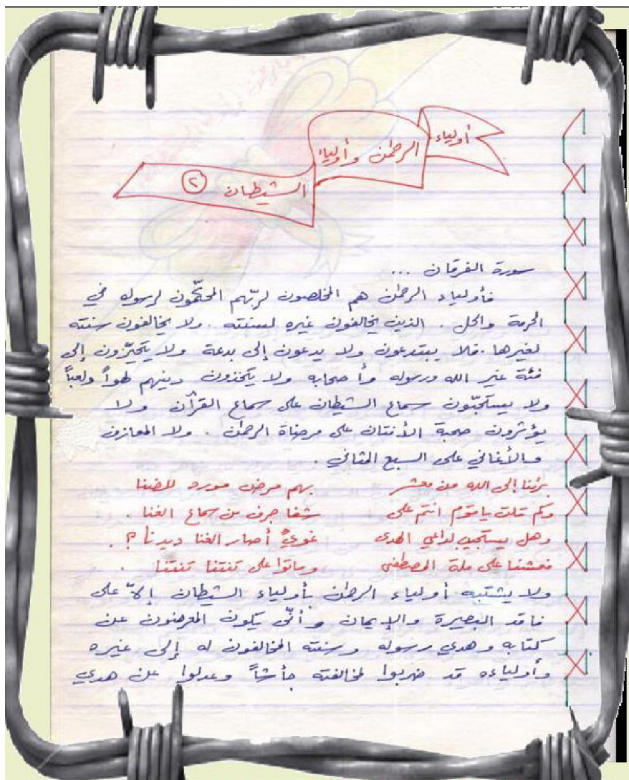 أولياء الرحمن وأولياء
الشيطان (٢)
سورة الفرقان ...
فأولياء الرحمن هم المخلصون لربهم المحكّمون لرسوله في
الحرمة والحل . الذين يخالفون غيره لسنته . ولا يخالفون سنته
لغيرها . فلا يبتدعون ولا يدعون إلى بدعة ولا يتحيّزون إلى
فئة غير الله ورسوله وأصحابه ولا يتخذون دينهم لهواً ولعباً
ولا يستحبّون سماع الشيطان على سماع القرآن ولا
يؤثرون صحبة الأنتان على مرضاة الرحمن . ولا المعازف
والأغاني على السبع المثاني .
برئنا إلى الله من معشر بهم مرض مورد للضنا
وكم قلت ياقوم انتم على شفا جرف من سماع الغنا .
وهل يستجيب لداعي الهدى غويٌّ أصار الغنا ديدنا ؟ .
فعشنا على ملة المصطفى وماتوا على تنتنا تنتنا .
ولا يشتبه أولياء الرحمن بأولياء الشيطان إلاّ على
فاقد البصيرة والإيمان وأنّى يكون المعرضون عن
كتابه وهدي رسوله وسنته المخالفون له إلى غيره
وأولياءه قد ضربوا لمخالفته جأشاً وعدلوا عن هدي